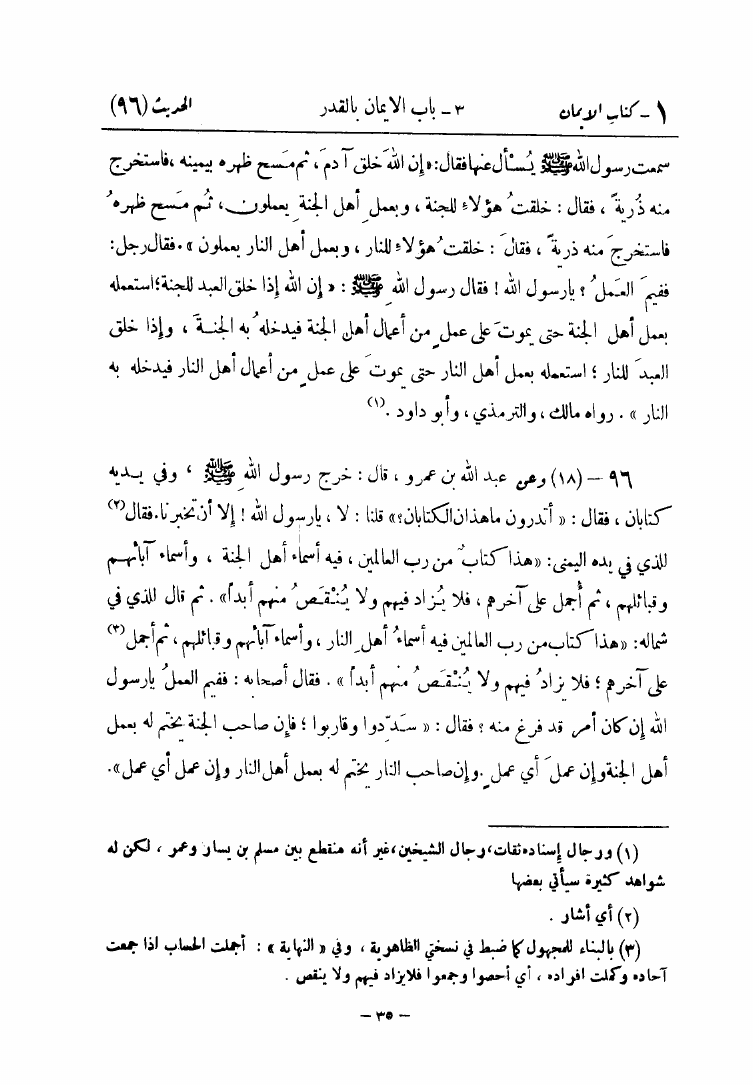 ١ - كتاب الايمان ٣ - باب الايمان بالقدر الحديث (٩٦)
سمعت رسول الله ﷺ يُسْأل عنها فقال: « إن اللهَ خلق آدمَ ، ثم مَسح ظهره بيمينه ، فاستخرج
منه ذُريةً ، فقال : خلقتُ هؤلاءِ للجنة ، وبعملِ أهل الجنةِ يعملون ، ثُم مَسح ظهرهُ
فاستخرجَ منه ذريةً ، فقالَ : خلقتُ هؤلاءِ للنار ، وبعمل أهل النار يعملون » . فقال رجل :
ففيمَ العَملُ ؟ يارسول الله ! فقال رسول اللهِ ﷺ : « إن الله إذا خلق العبد للجنة ؛ استعمله
بعمل أهل الجنة حتى يموتَ على عملٍ من أعمال أهل الجنة فيدخلهُ به الجنةَ ، وإذا خلق
العبدَ للنار ؛ استعمله بعمل أهل النار حتى يموتَ على عملٍ من أعمال أهل النار فيدخله به
النار » . رواه مالك ، والترمذي ، وأبو داود . (١)
٩٦ – (١٨) وعن عبد الله بن عمرو ، قال : خرج رسول اللهِ ﷺ ، وفي يديه
كتابان ، فقال : « أتدرون ماهذان الكتابان؟» قلنا : لا ، يارسول الله ! إلا أن تخبرنا . فقال (٢)
للذي في يده اليمنى : «هذا كتابٌ من رب العالمين ، فيه أسماء أهل الجنة ، وأسماء آبائهم
وقبائلهم ، ثم أُجمل على آخرهم ، فلا يُزاد فيهم ولا يُنْقَصُ منهم أبداً» . ثم قال للذي في
شماله : «هذا كتاب من رب العالمين فيه أسماءُ أهلِ النار ، وأسماء آبائهم وقبائلهم ، ثم أجمل (٣)
على آخرهم ؛ فلا يزادُ فيهم ولا يُنْقَصُ منهم أبداً » . فقال أصحابه : ففيم العملُ يارسول
الله إن كان أمر قد فرغ منه ؟ فقال : « سَدِّدوا وقاربوا ؛ فإن صاحب الجنة يختم له بعمل
أهل الجنة وإن عملَ أي عملٍ . وإن صاحب النار يختم له بعمل أهل النار وإن عمل أي عمل » .
(١) ورجال إسناده ثقات ، رجال الشيخين ، غير أنه منقطع بين مسلم بن يسار وعمر ، لكن له
شواهد كثيرة سيأتي بعضها
(٢) أي أشار .
(٣) بالبناء للمجهول كما ضبط في نسختي الظاهرية ، وفي « النهاية » : أجملت الحساب اذا جمعت
آحاده وكملت افراده ، أي أحصوا وجمعوا فلايزاد فيهم ولا ينقص .
– ٣٥ –